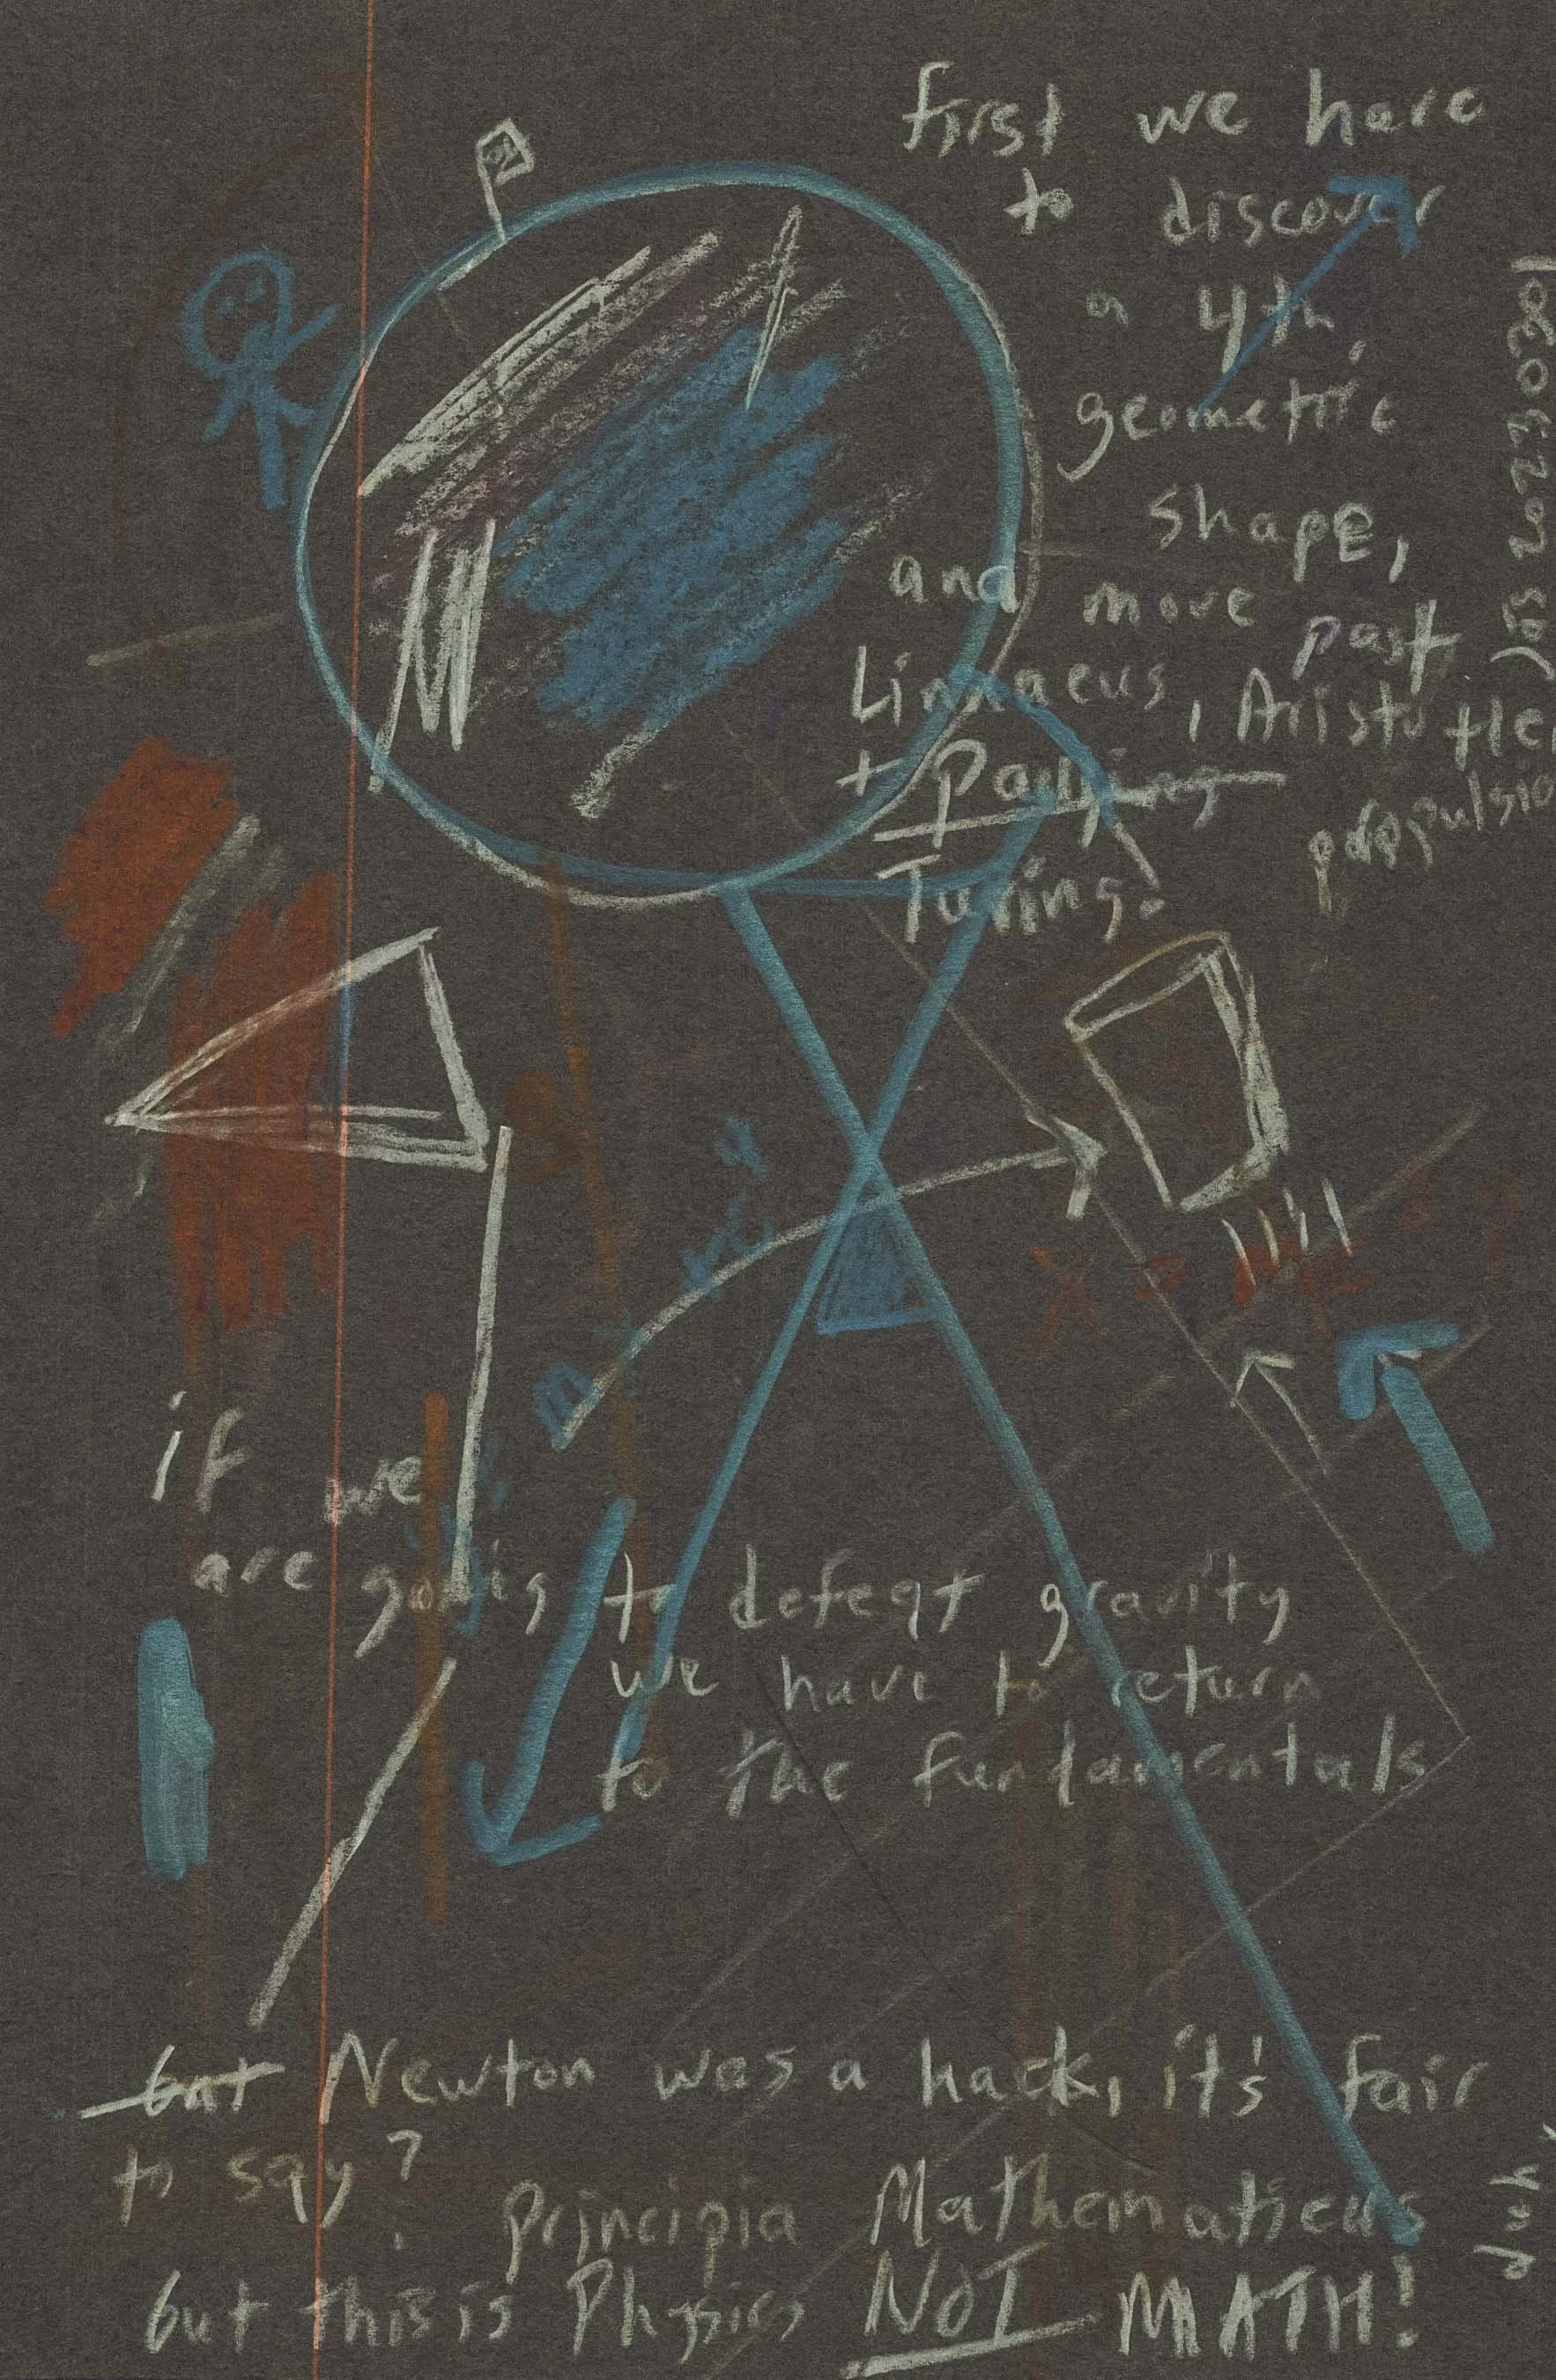 first we have
to discover
a 4th
geometric
shape,
and move past
Linnaeus, Aristotle,
+ Pauling
Turing.
propulsio
if we
are going to defeat gravity
we have to return
to the fundamentals
but Newton was a hack, it's fair
to say?
principia Mathematicus
but this is Physics NOT MATH!